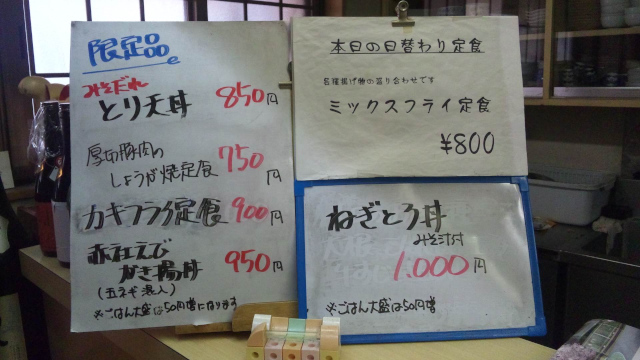 限定品
みそだれ
とり天丼 850円
厚切豚肉の
しょうが焼定食 750円
カキフライ定食 900円
赤社えび
かき揚丼 950円
(玉ネギ混入)
※ごはん大盛は50円増になります
本日の日替わり定食
各種揚げ物の盛り合わせです
ミックスフライ定食
¥800
ねぎとろ丼
みそ汁付
1.000円
※ごはん大盛は50円増